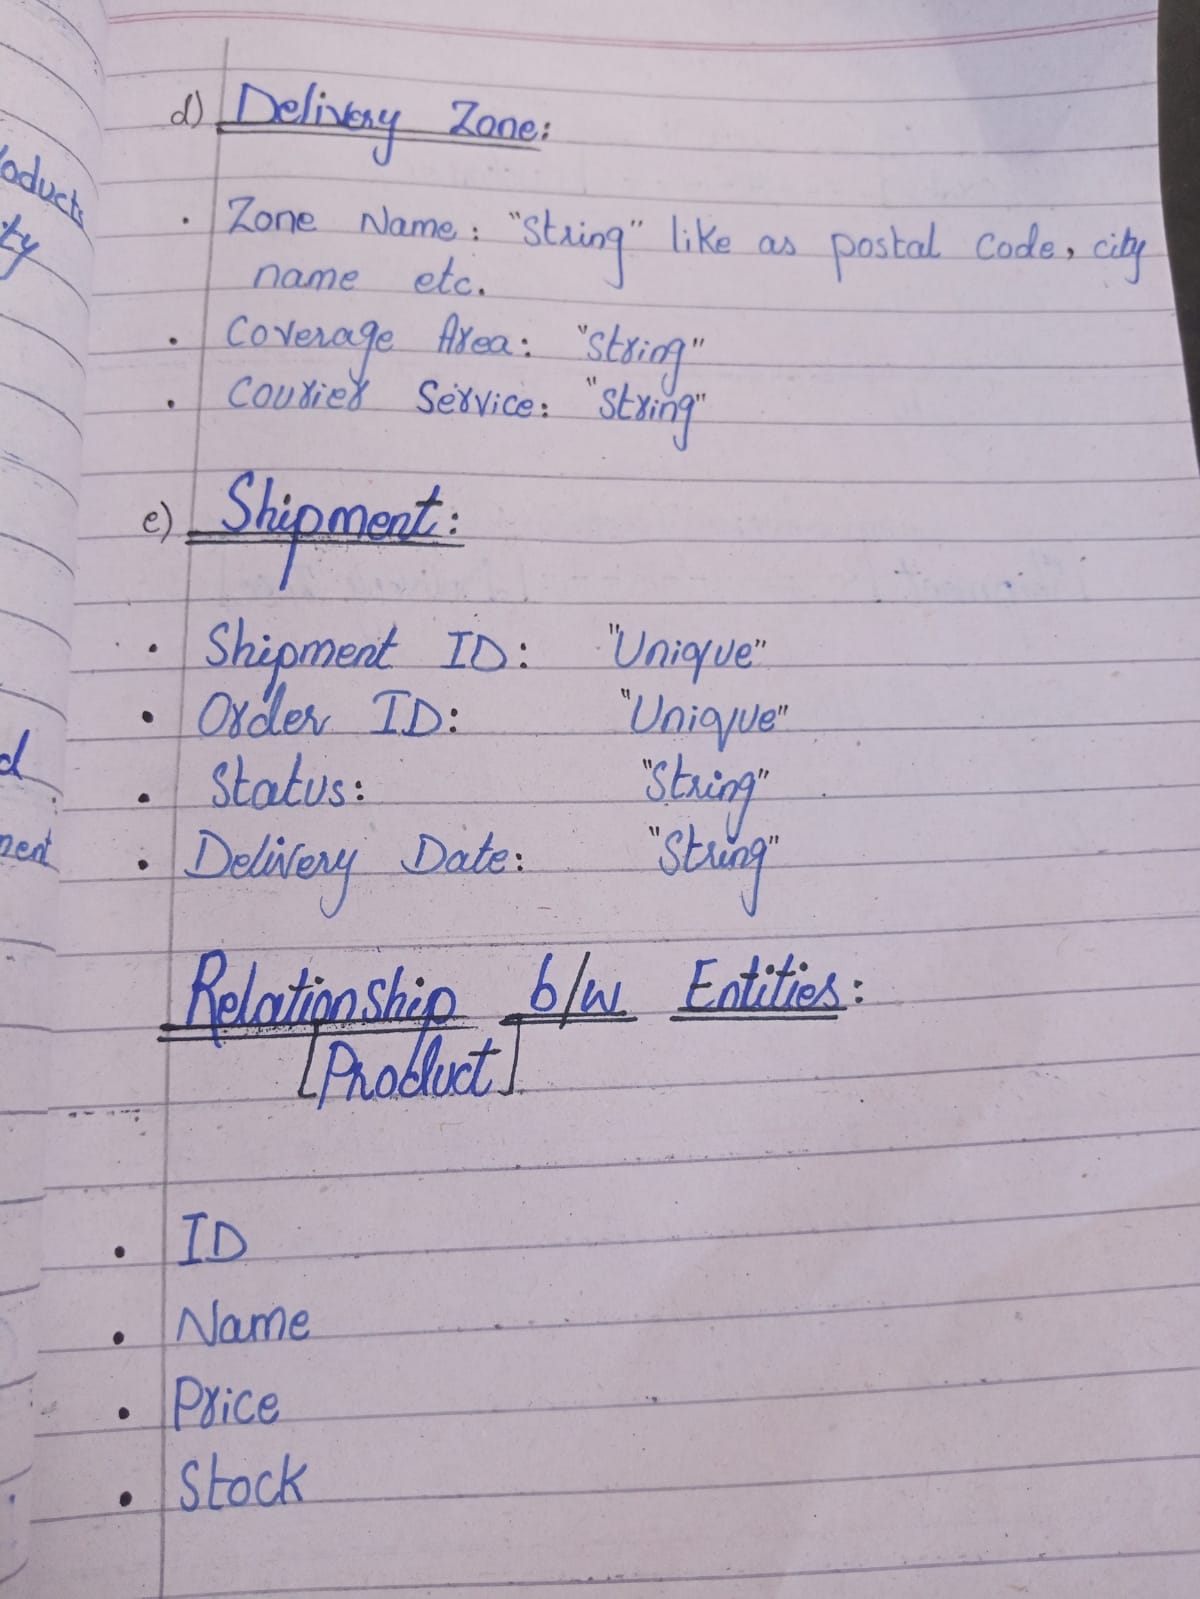 d) Delivery Zone:
· Zone Name: "String" like as postal Code, city
name etc.
· Coverage Area: "String"
· Courier Service: "String"
e) Shipment:
· Shipment ID: "Unique"
· Order ID: "Unique"
· Status: "String"
· Delivery Date: "String"
Relationship b/w Entities:
[Product]
· ID
· Name
· Price
· Stock